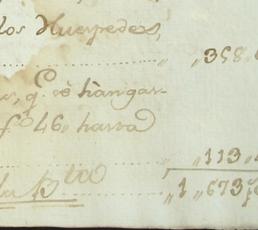 los Huespedes,
,, ,,358,,
q. se hàn gas-
fº 46,, hasta
,, ,,113,,
la B.ta ,,1,,673